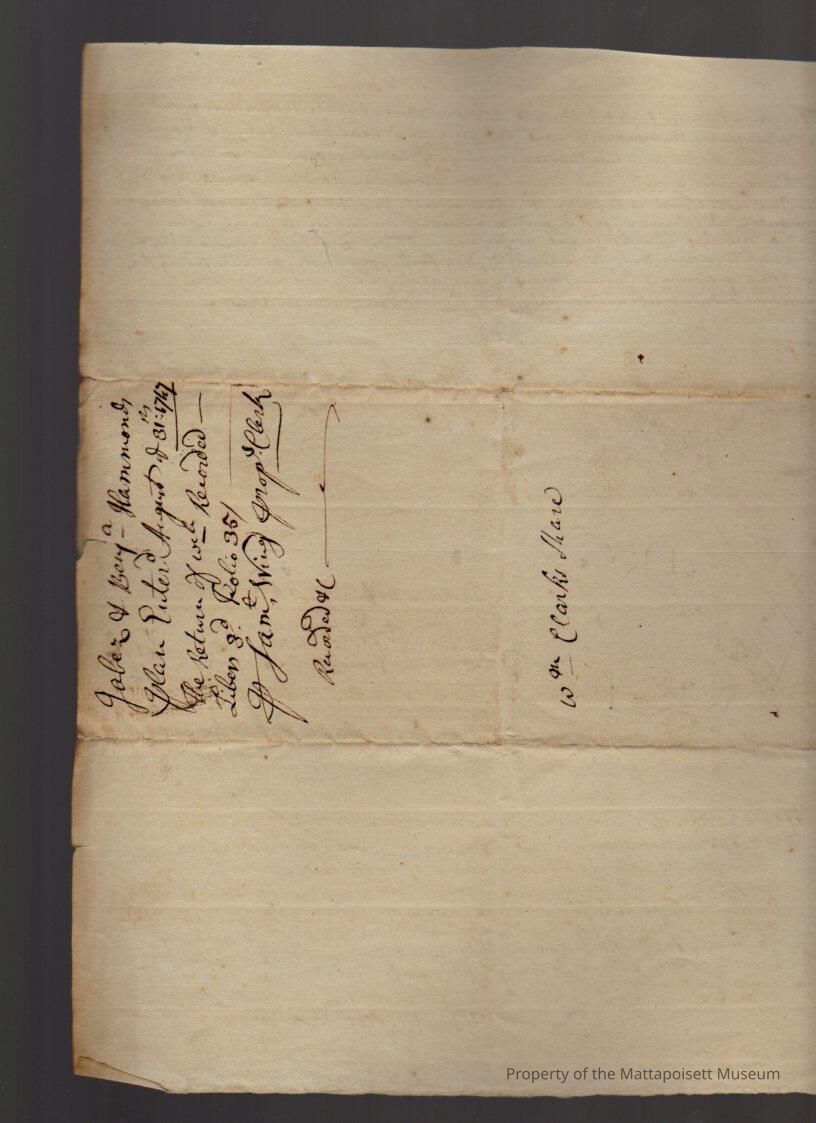 Jabez & Benja Hammonds
Plan Enterd August ye 31st: 1747
The Return of wch Recorded
Liben 3d Folio 357
Pr Samll Wing Propr Clerk
Recorded &c
Wm Clarks Share
Property of the Mattapoisett Museum